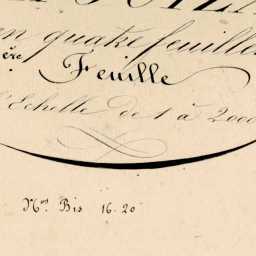 en quatre feuilles
ère Feuille
l'Echelle de 1 à 2000
Nos Bis 16.20